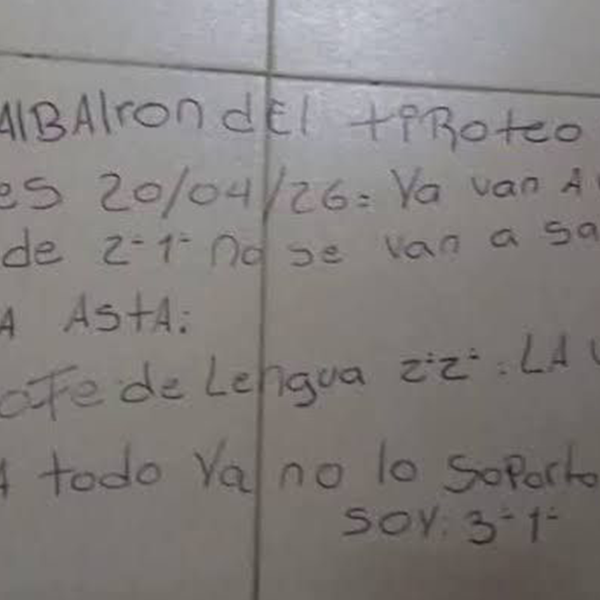 AlBAIron dEl tiRoteo
es 20/04/26: Ya van A
de 2-1- no se van a sa
A AStA:
oFe de Lengua 2-2-. LA
A todo Ya no lo Soporto
SOY: 3-1-